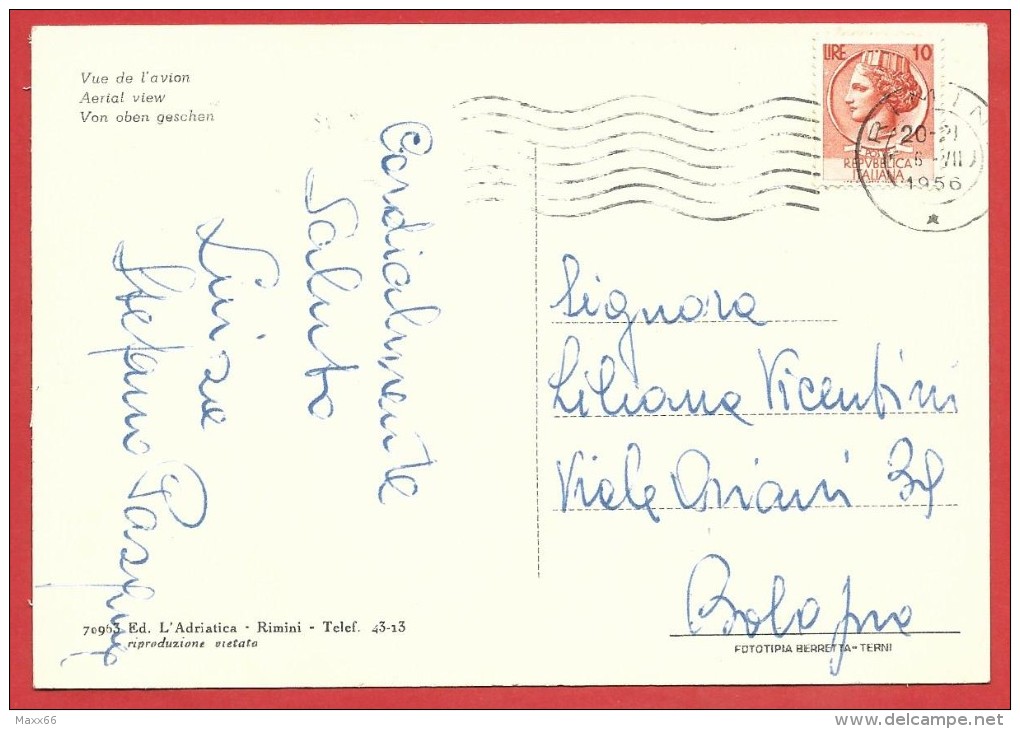 Vue de l'avion
Aerial view
Von oben geschen
LIRE 10
POSTE
REPVBBLICA
ITALIANA
RIMINI
20-21
6-VII
1956
Cordialmente
Saluto
Luise
Stefano
Signora
Liliana Vicentini
Viale Oriani
Bologna
70963 Ed. L'Adriatica - Rimini - Telef. 43-13
riproduzione vietata
FOTOTIPIA BERRETTA - TERNI
Maxx66
www.delcampe.net